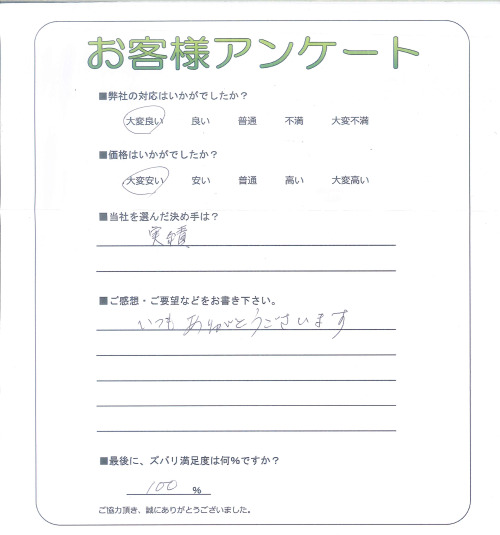 お客様アンケート
■弊社の対応はいかがでしたか？
大変良い 良い 普通 不満 大変不満
■価格はいかがでしたか？
大変安い 安い 普通 高い 大変高い
■当社を選んだ決め手は？
実績
■ご感想・ご要望などをお書き下さい。
いつもありがとうございます
■最後に、ズバリ満足度は何%ですか？
100 %
ご協力頂き、誠にありがとうございました。